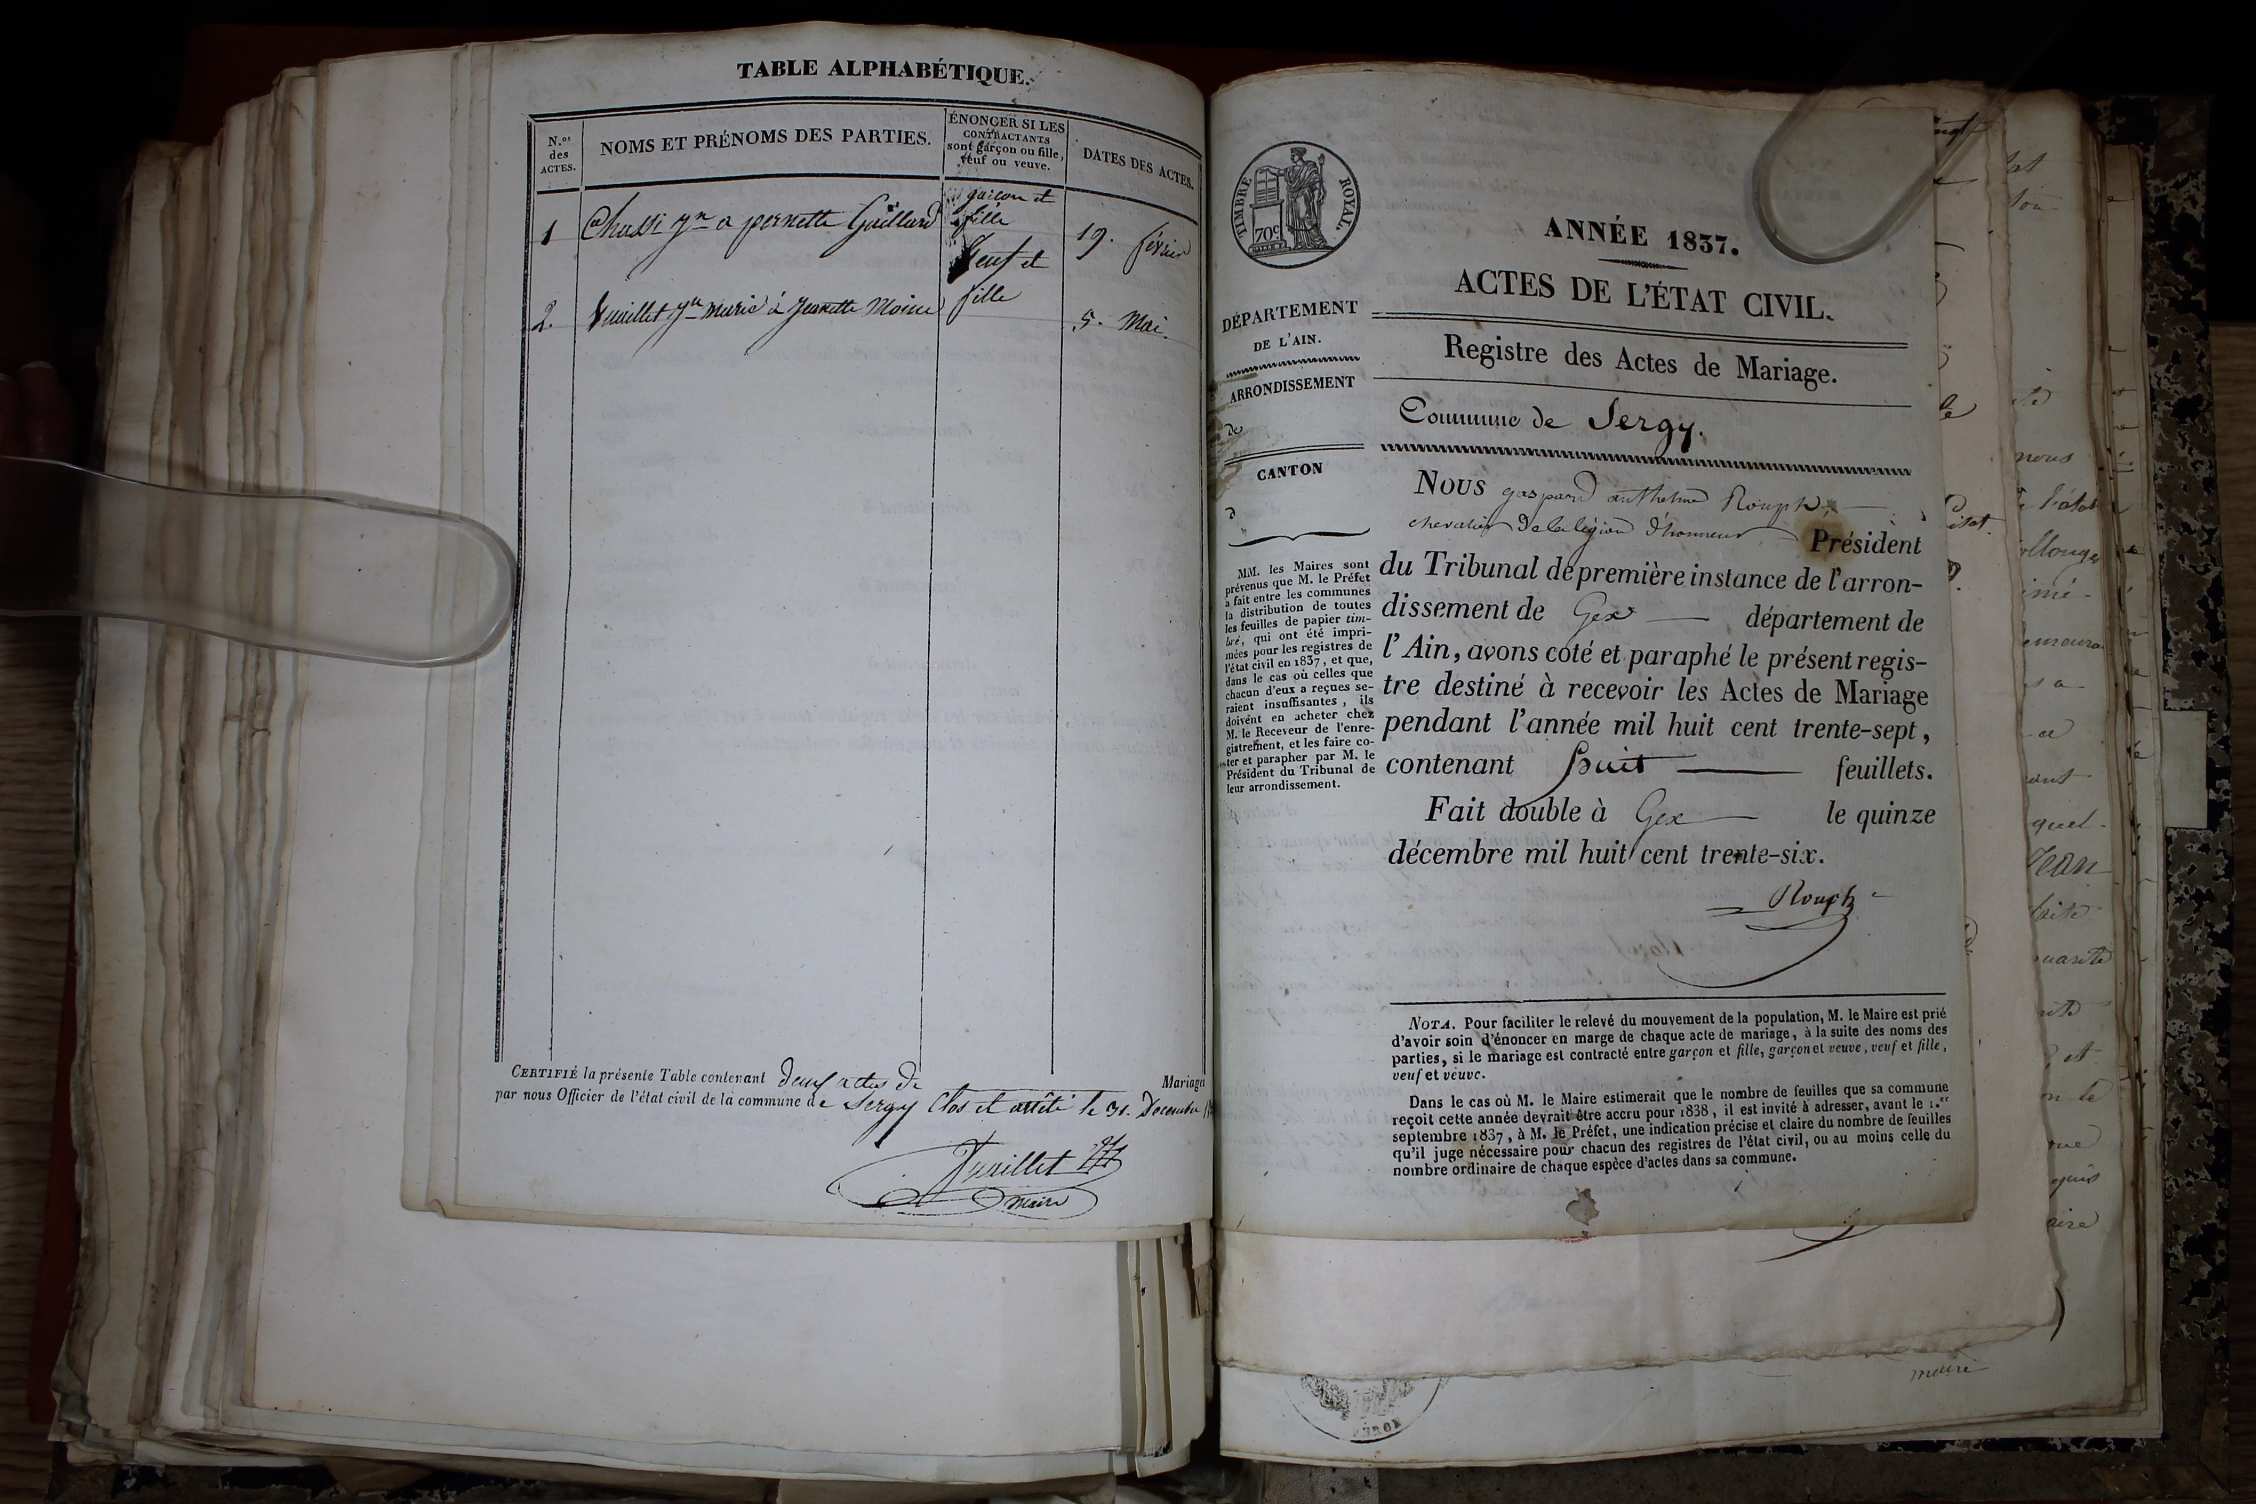 TABLE ALPHABÉTIQUE.
N.os des ACTES.
NOMS ET PRÉNOMS DES PARTIES.
ÉNONCER SI LES
CONTRACTANTS
sont garçon ou fille,
veuf ou veuve.
DATES DES ACTES.
garçon et
1 Chassi jn a pernette Gaillard fille 19. février
Veuf et
2. Vuaillet jn marie à Jeanette Moine fille 5. Mai
CERTIFIÉ la présente Table contenant deux actes de Mariage
par nous Officier de l'état civil de la commune de Sergy Clos et arrêté le 31. Decembre
Vuaillet
maire
TIMBRE ROYAL.
70c
ANNÉE 1837.
ACTES DE L'ÉTAT CIVIL.
DÉPARTEMENT
DE L'AIN.
ARRONDISSEMENT
de
CANTON
d
MM. les Maires sont
prévenus que M. le Préfet
a fait entre les communes
la distribution de toutes
les feuilles de papier tim-
bré, qui ont été impri-
mées pour les registres de
l'état civil en 1837, et que,
dans le cas où celles que
chacun d'eux a reçues se-
raient insuffisantes, ils
doivent en acheter chez
M. le Receveur de l'enre-
gistrement, et les faire co-
ter et parapher par M. le
Président du Tribunal de
leur arrondissement.
Registre des Actes de Mariage.
Commune de Sergy.
Nous gaspard anthelme Rouph,
chevalier de la légion d'honneur Président
du Tribunal de première instance de l'arron-
dissement de Gex département de
l'Ain, avons coté et paraphé le présent regis-
tre destiné à recevoir les Actes de Mariage
pendant l'année mil huit cent trente-sept,
contenant huit feuillets.
Fait double à Gex le quinze
décembre mil huit cent trente-six.
Rouph
NOTA. Pour faciliter le relevé du mouvement de la population, M. le Maire est prié
d'avoir soin d'énoncer en marge de chaque acte de mariage, à la suite des noms des
parties, si le mariage est contracté entre garçon et fille, garçon et veuve, veuf et fille,
veuf et veuve.
Dans le cas où M. le Maire estimerait que le nombre de feuilles que sa commune
reçoit cette année devrait être accru pour 1838, il est invité à adresser, avant le 1.er
septembre 1837, à M. le Préfet, une indication précise et claire du nombre de feuilles
qu'il juge nécessaire pour chacun des registres de l'état civil, ou au moins celle du
nombre ordinaire de chaque espèce d'actes dans sa commune.
nous
Jean
maire